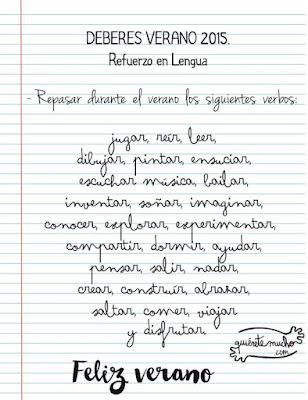 DEBERES VERANO 2015.
Refuerzo en Lengua
- Repasar durante el verano los siguientes verbos:
jugar, reír, leer,
dibujar, pintar, ensuciar,
escuchar música, bailar,
inventar, soñar, imaginar,
conocer, explorar, experimentar,
compartir, dormir, ayudar,
pensar, salir, nadar,
crear, construir, abrazar,
saltar, comer, viajar
y disfrutar.
quiéretemucho
.com
Feliz verano